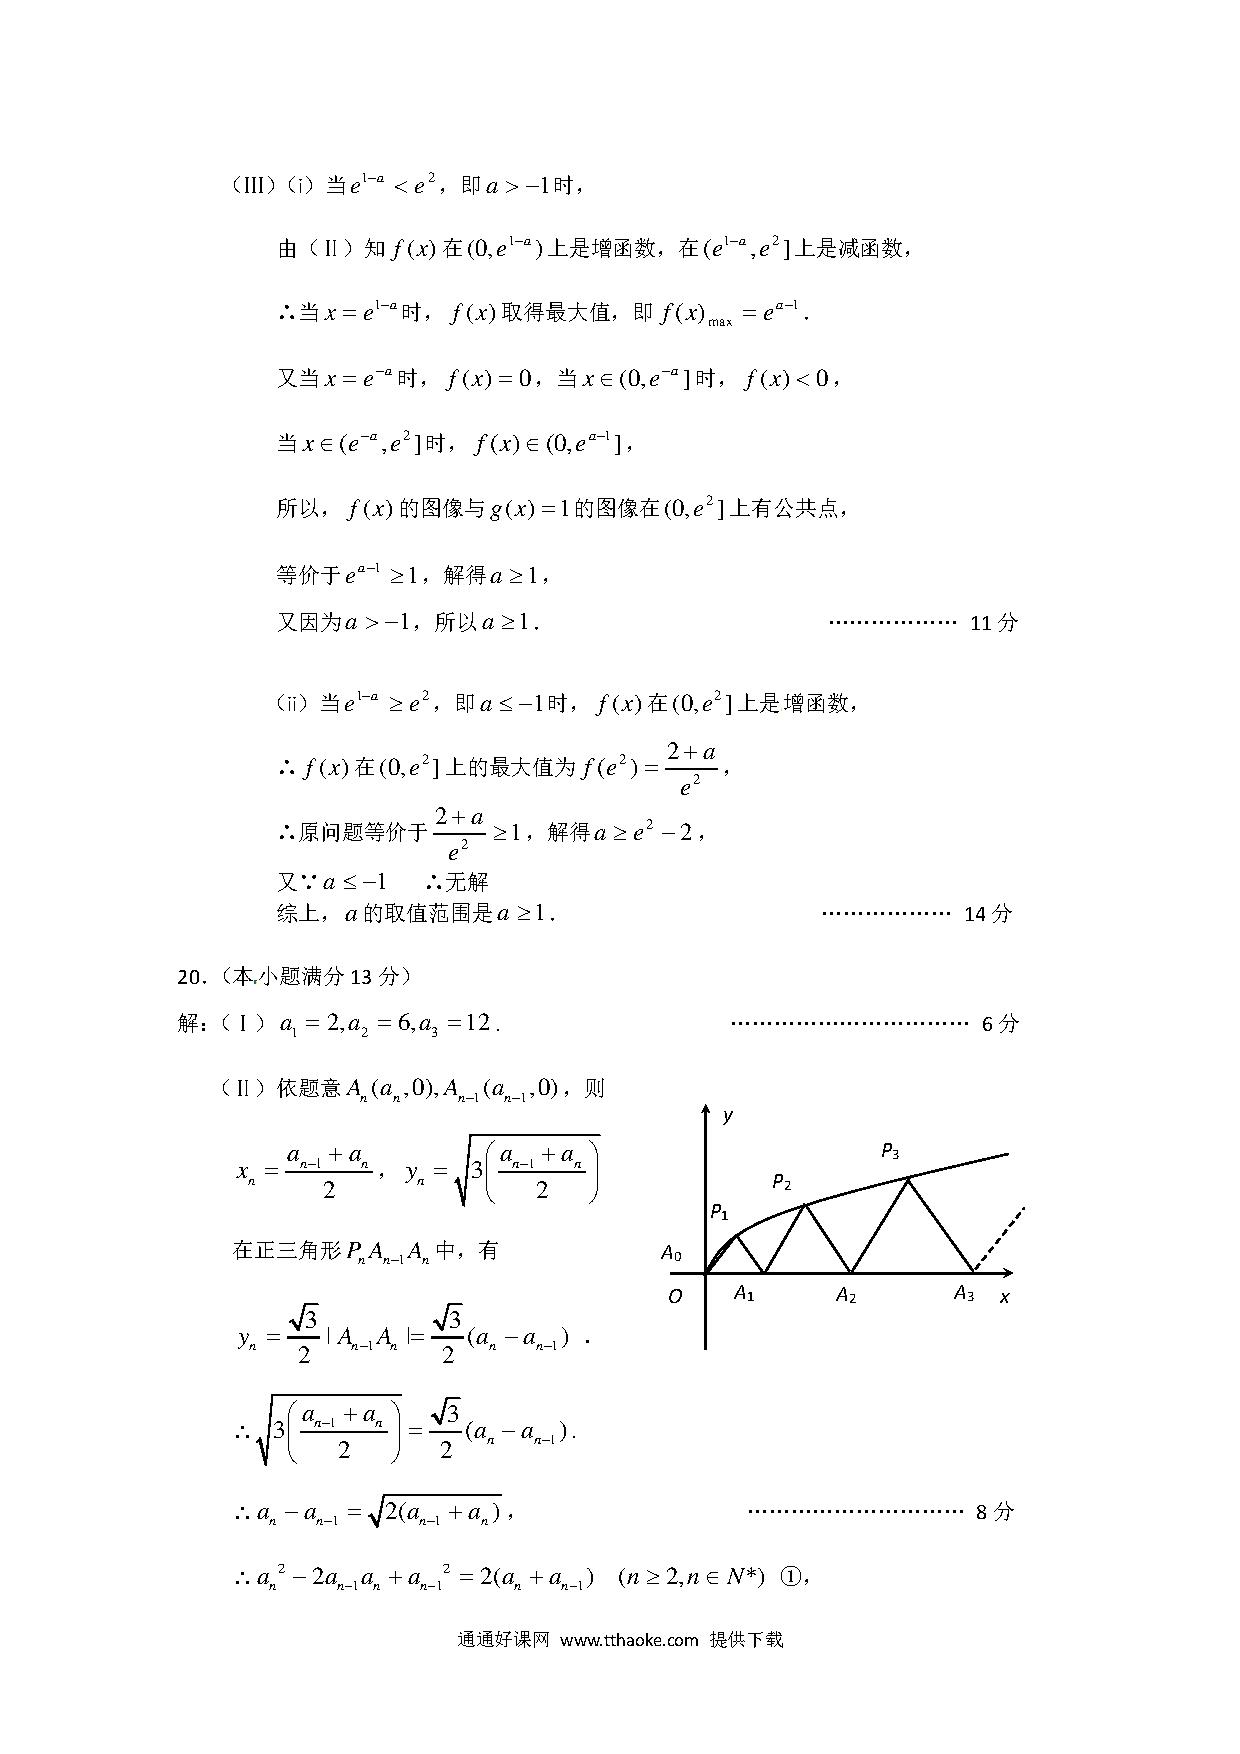 （Ⅲ）（ⅰ）当e^{1−a} < e^2，即a > −1时，
由（Ⅱ）知 f(x)在(0,e^{1−a})上是增函数，在(e^{1−a},e^2]上是减函数，
∴当x = e^{1−a}时，f(x)取得最大值，即 f(x)_{max} = e^{a−1}．
又当x = e^{−a}时，f(x) = 0，当x∈(0,e^{−a}]时，f(x) < 0，
当x∈(e^{−a},e^2]时，f(x)∈(0,e^{a−1}]，
所以，f(x)的图像与g(x) = 1的图像在(0,e^2]上有公共点，
等价于e^{a−1} ≥1，解得a ≥1，
又因为a > −1，所以a ≥1． ……………… 11分
（ⅱ）当e^{1−a} ≥ e^2，即a ≤ −1时，f(x)在(0,e^2]上是增函数，
∴ f(x)在(0,e^2]上的最大值为 f(e^2) = \frac{2+a}{e^2}，
∴原问题等价于\frac{2+a}{e^2} ≥1，解得a ≥ e^2 − 2，
又∵a ≤ −1 ∴无解
综上，a的取值范围是a ≥1． ……………… 14分
20．（本小题满分13分）
解：（Ⅰ）a_1 = 2,a_2 = 6,a_3 = 12． …………………………… 6分
（Ⅱ）依题意A_n(a_n,0),A_{n−1}(a_{n−1},0)，则
x_n = \frac{a_{n−1}+a_n}{2}，y_n = \sqrt{3(\frac{a_{n−1}+a_n}{2})}
在正三角形P_nA_{n−1}A_n中，有
y_n = \frac{\sqrt{3}}{2}|A_{n−1}A_n| = \frac{\sqrt{3}}{2}(a_n − a_{n−1})．
∴\sqrt{3(\frac{a_{n−1}+a_n}{2})} = \frac{\sqrt{3}}{2}(a_n − a_{n−1})．
∴a_n − a_{n−1} = \sqrt{2(a_{n−1}+a_n)}， ………………………… 8分
∴a_n^2 − 2a_{n−1}a_n + a_{n−1}^2 = 2(a_n + a_{n−1}) (n ≥ 2,n∈N*) ①，
y
P3
P2
P1
A0
O A1 A2 A3 x
通通好课网 www.tthaoke.com 提供下载